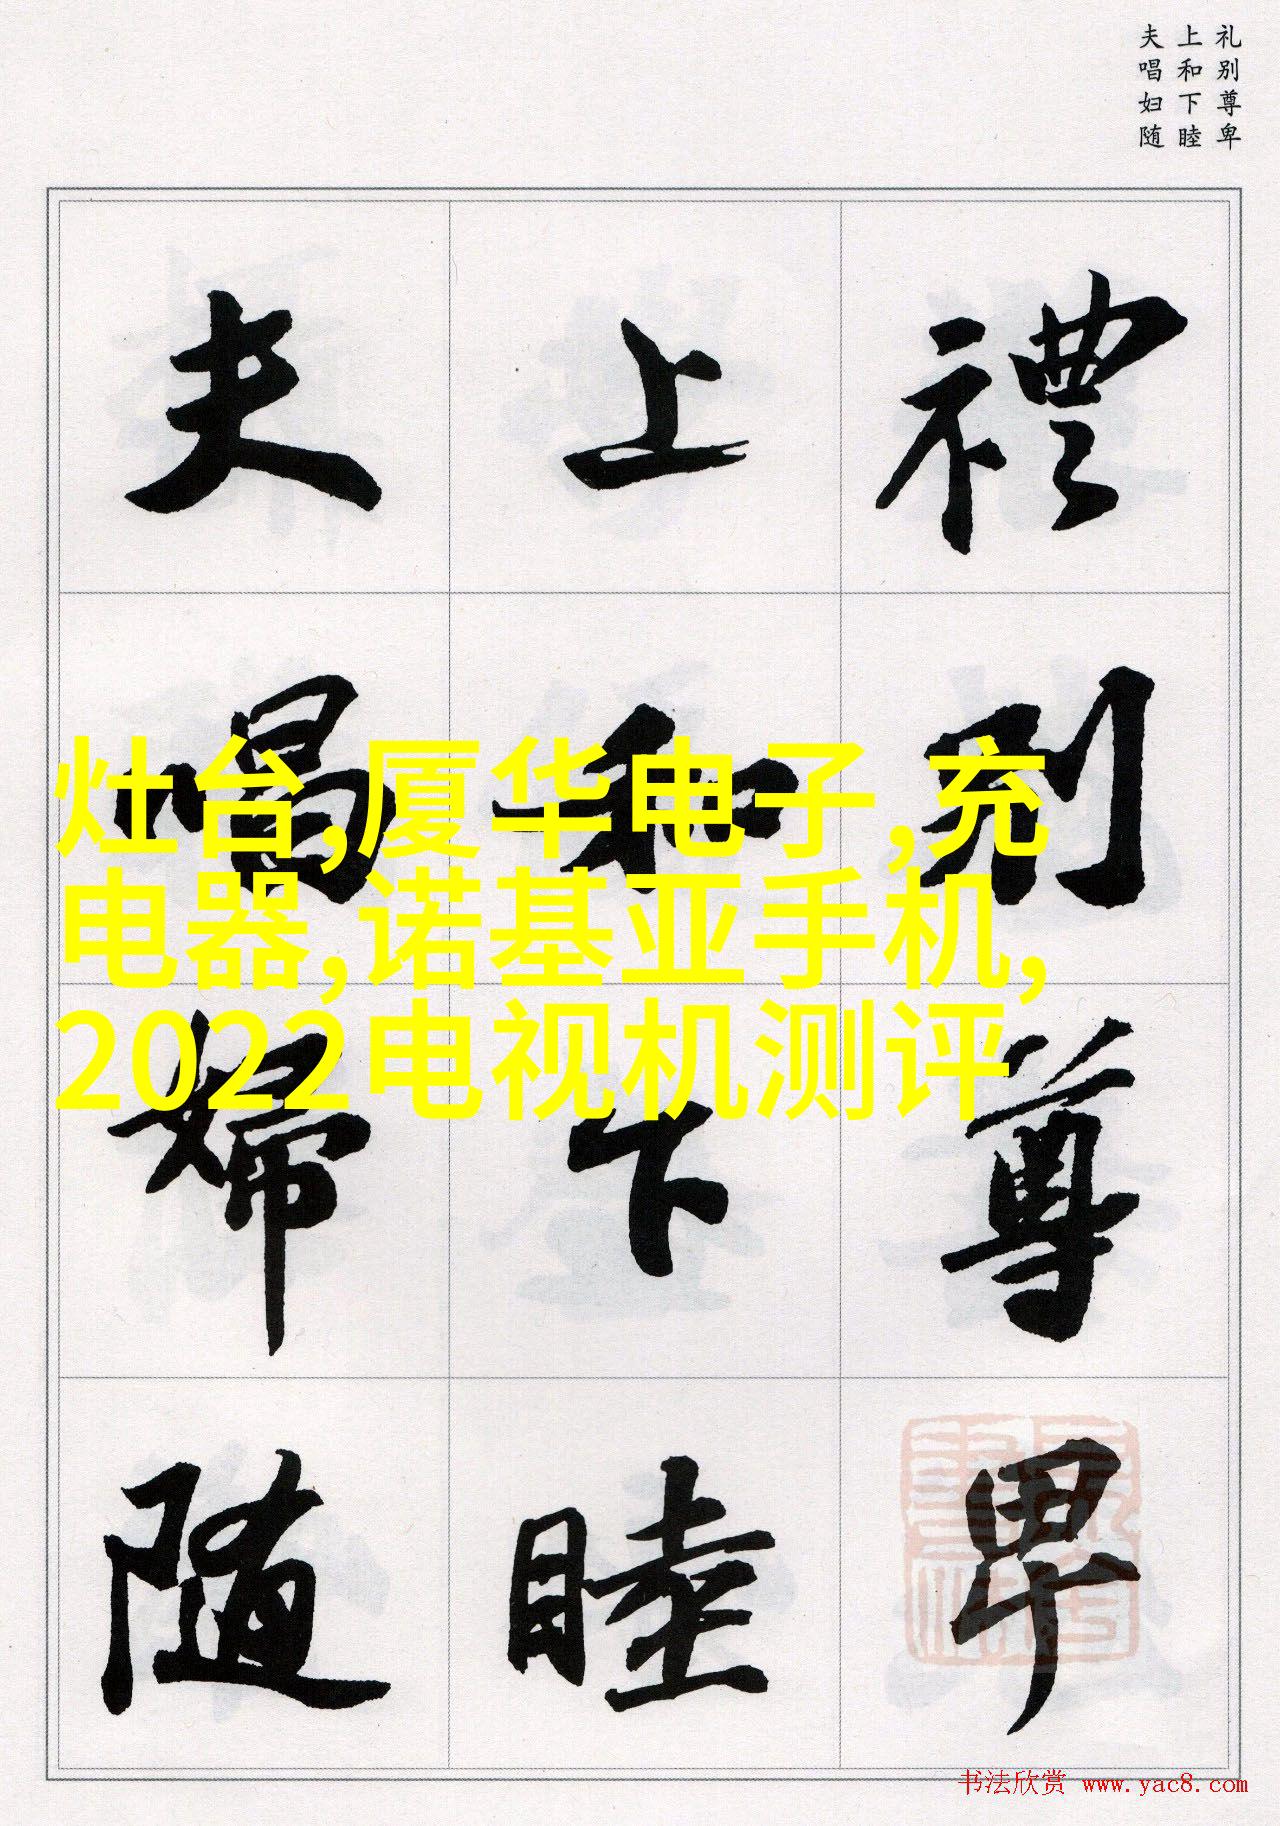 礼别尊卑
上和下睦
夫唱妇随
禮别尊卑
上和下睦
夫唱婦随
灶台,厦华电子,充
电器,诺基亚手机,
2022电视机测评
书法欣赏 www.yac8.com